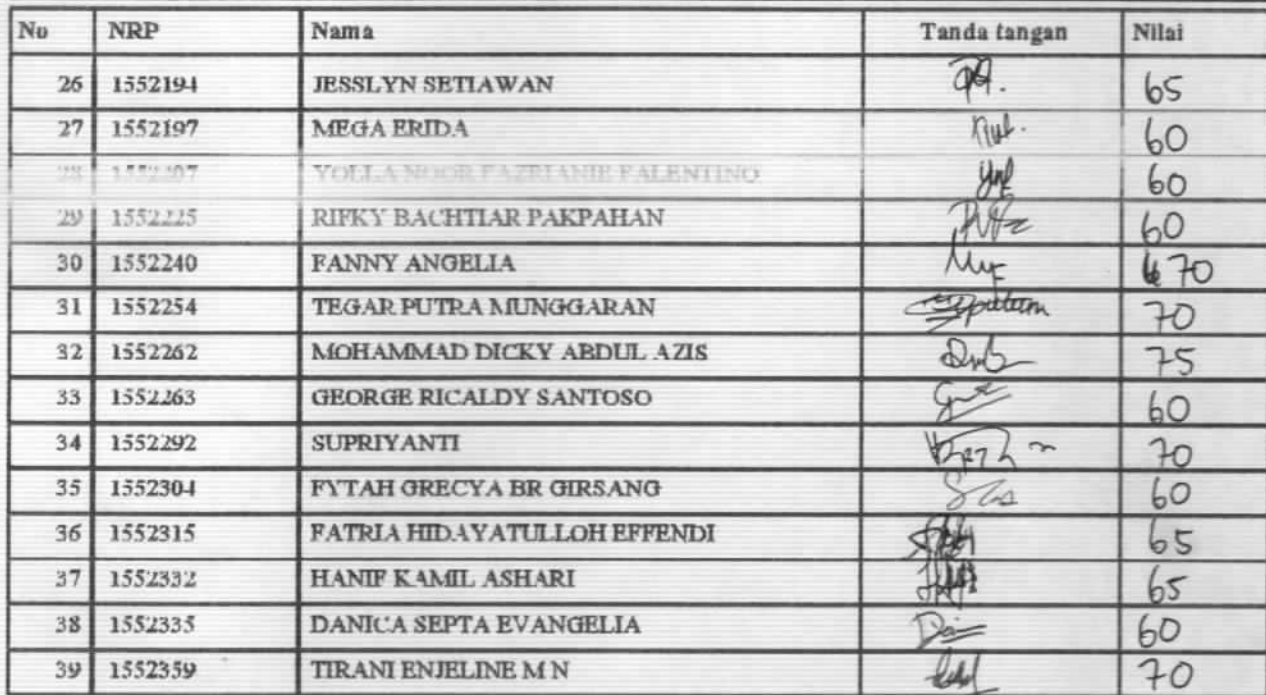 No NRP Nama Tanda tangan Nilai
26 1552194 JESSLYN SETIAWAN 65
27 1552197 MEGA ERIDA 60
28 1552207 YOLLA NOOR FAZRIANIE FALENTINO 60
29 1552225 RIFKY BACHTIAR PAKPAHAN 60
30 1552240 FANNY ANGELIA 70
31 1552254 TEGAR PUTRA MUNGGARAN 70
32 1552262 MOHAMMAD DICKY ABDUL AZIS 75
33 1552263 GEORGE RICALDY SANTOSO 60
34 1552292 SUPRIYANTI 70
35 1552304 FYTAH GRECYA BR GIRSANG 60
36 1552315 FATRIA HIDAYATULLOH EFFENDI 65
37 1552332 HANIF KAMIL ASHARI 65
38 1552335 DANICA SEPTA EVANGELIA 60
39 1552359 TIRANI ENJELINE M N 70